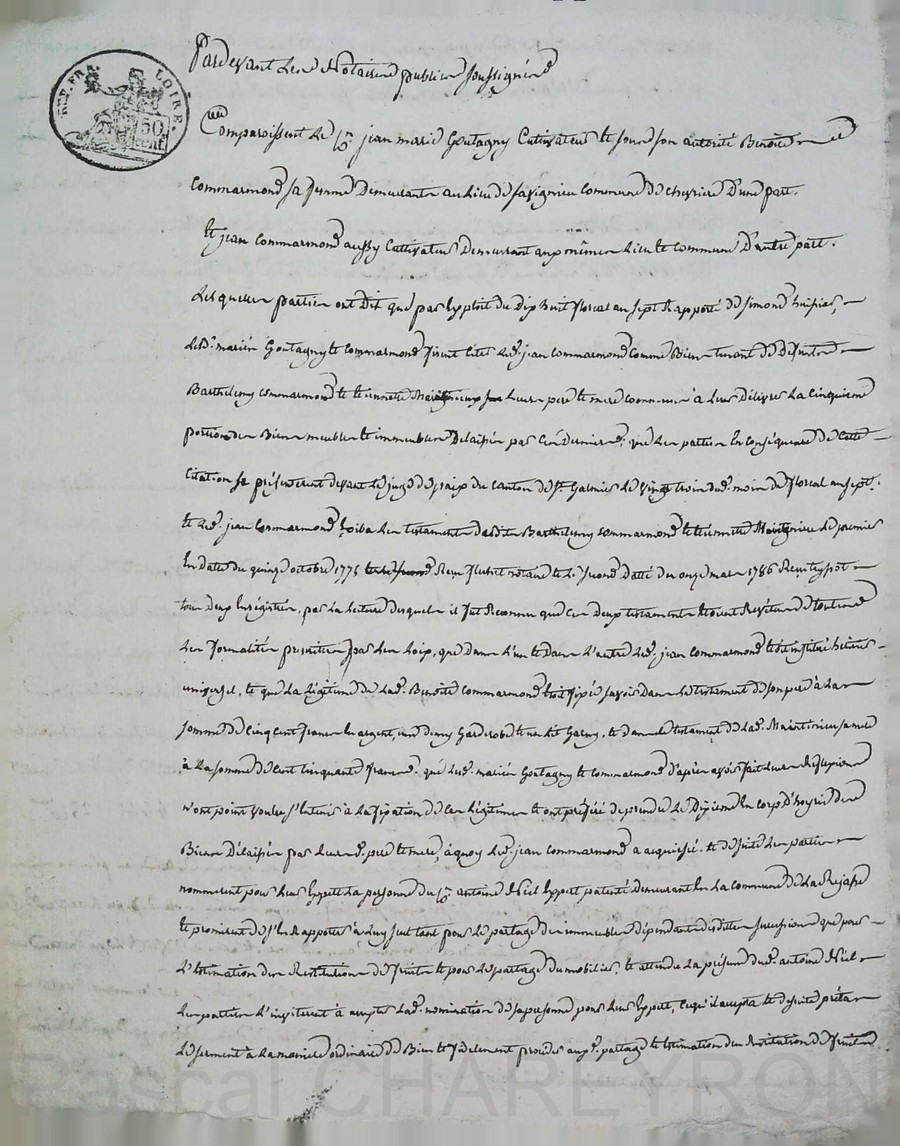 REP. FRA. LOIRE.
50 cent
Pardevant Les Notaires publics soussignés
Comparoissent le Cn jean marie Goutagny Cultivateur et sous son autorité Benoite
Commarmond sa femme Demeurants au lieu de savignieu commune de chevriere D'une part.
Et jean Commarmond aussy Cultivateur Demeurant aux mêmes Lieu et commune D'autre part.
Lesquelles parties ont Dit que par Exploit du Dix huit floreal an sept Rapporté de simond huissier,
Lesd. mariés Goutagny et Commarmond firent citer led. jean commarmond comme Bien tenant de Défunts
Barthelemy commarmond et etiennette leurs pere et mere à Leur Délivrer La Cinquieme
portion des Biens meubles et immeubles Délaissés par Ces Derniers, que Les parties En conséquence de Cette
Citation se présenterent devant le juge de paix du canton de St. Galmier le vingt trois dud. mois de floreal an sept.
et led. jean Commarmond Exiba les testaments desdits Barthelemy Commarmond et etiennette le premier
En Date du quinze octobre 1775 Reçu notaire et le second Datté du onze mars 1786
tous deux Enrégistrés, par La Lecture Desquels il fut Reconnu que Ces Deux testaments étoient Revétus de toutes
Les formalités prescrites par Les Loix, que Dans L'un et Dans L'autre Led. jean commarmond est institué héritier
universel, et que La Légitime de Lad. Benoite Commarmond Etoit fixée savoir dans le testament de son pere à La
somme de Cinq Cent francs En argent, une garderobe et et Dans le testament de Lad. sa mere
à La somme de Cent Cinquante francs. que Lesd. mariés Goutagny et commarmond d'après avoir fait Leurs Réflexions
n'ont point voulu s'En tenir à La fixation de Ces Légitimes et ont préféré de prendre Le Dixieme En corps D'hoyrie des
Biens Délaissés par Leursd. pere et mere, à quoy Led. jean Commarmond a acquiescé. et de suite Les parties
nommerent pour Leur Expert La personne du Cn antoine Niel Expert patenté Demeurant En La Commune de La Rajasse
et promirent de s'En Rapporter à Luy seul tant pour le partage des immeubles Dépendants desdittes successions que pour
L'Estimation des Restitutions de fruits et pour Le partage du mobilier. et attendu La présence dud. antoine Niel
Les parties L'invitèrent à accepter Lad. nomination de sa personne pour Leur Expert, ce qu'il accepta et de suite prêta
Le serment à La maniere ordinaire de Bien et fidelement procéder auxd. partage et Estimation des Restitutions de fruits
Pascal CHAREYRON